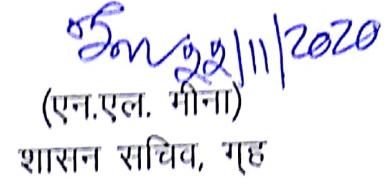 22/11/2020
(एन.एल. मीना)
शासन सचिव, गृह